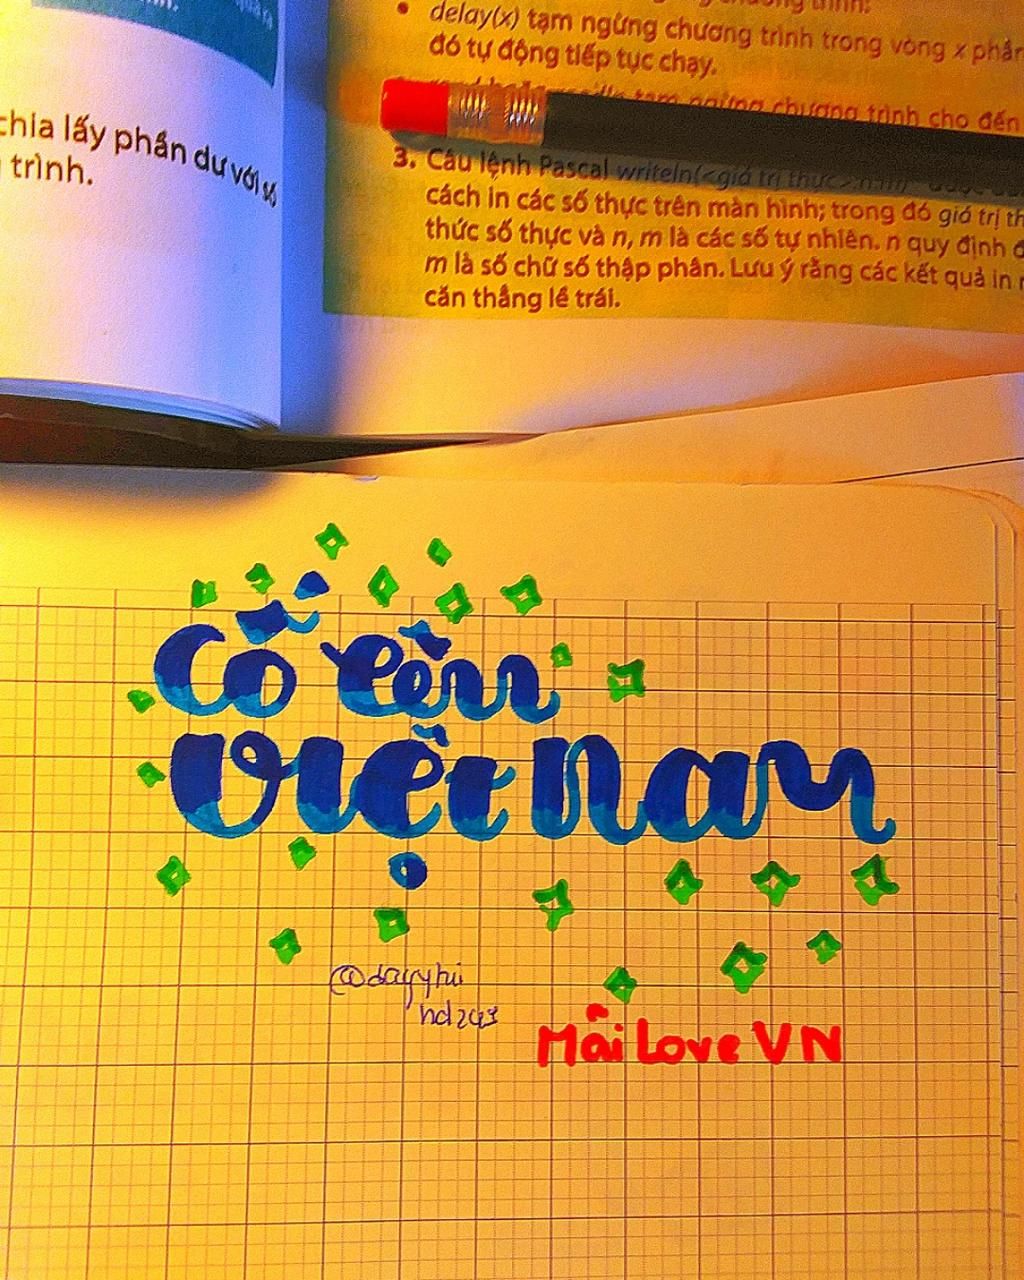 chia lấy phần dư với số
trình.
delay(x) tạm ngừng chương trình trong vòng x phần
đó tự động tiếp tục chạy.
tạm ngừng chương trình cho đến
3. Câu lệnh Pascal writeln(<giá trị thực>:n:m)
cách in các số thực trên màn hình; trong đó giá trị th
thức số thực và n, m là các số tự nhiên. n quy định đ
m là số chữ số thập phân. Lưu ý rằng các kết quả in r
căn thẳng lề trái.
Cố lên
Việt Nam
@dayyhii
Mãi Love VN